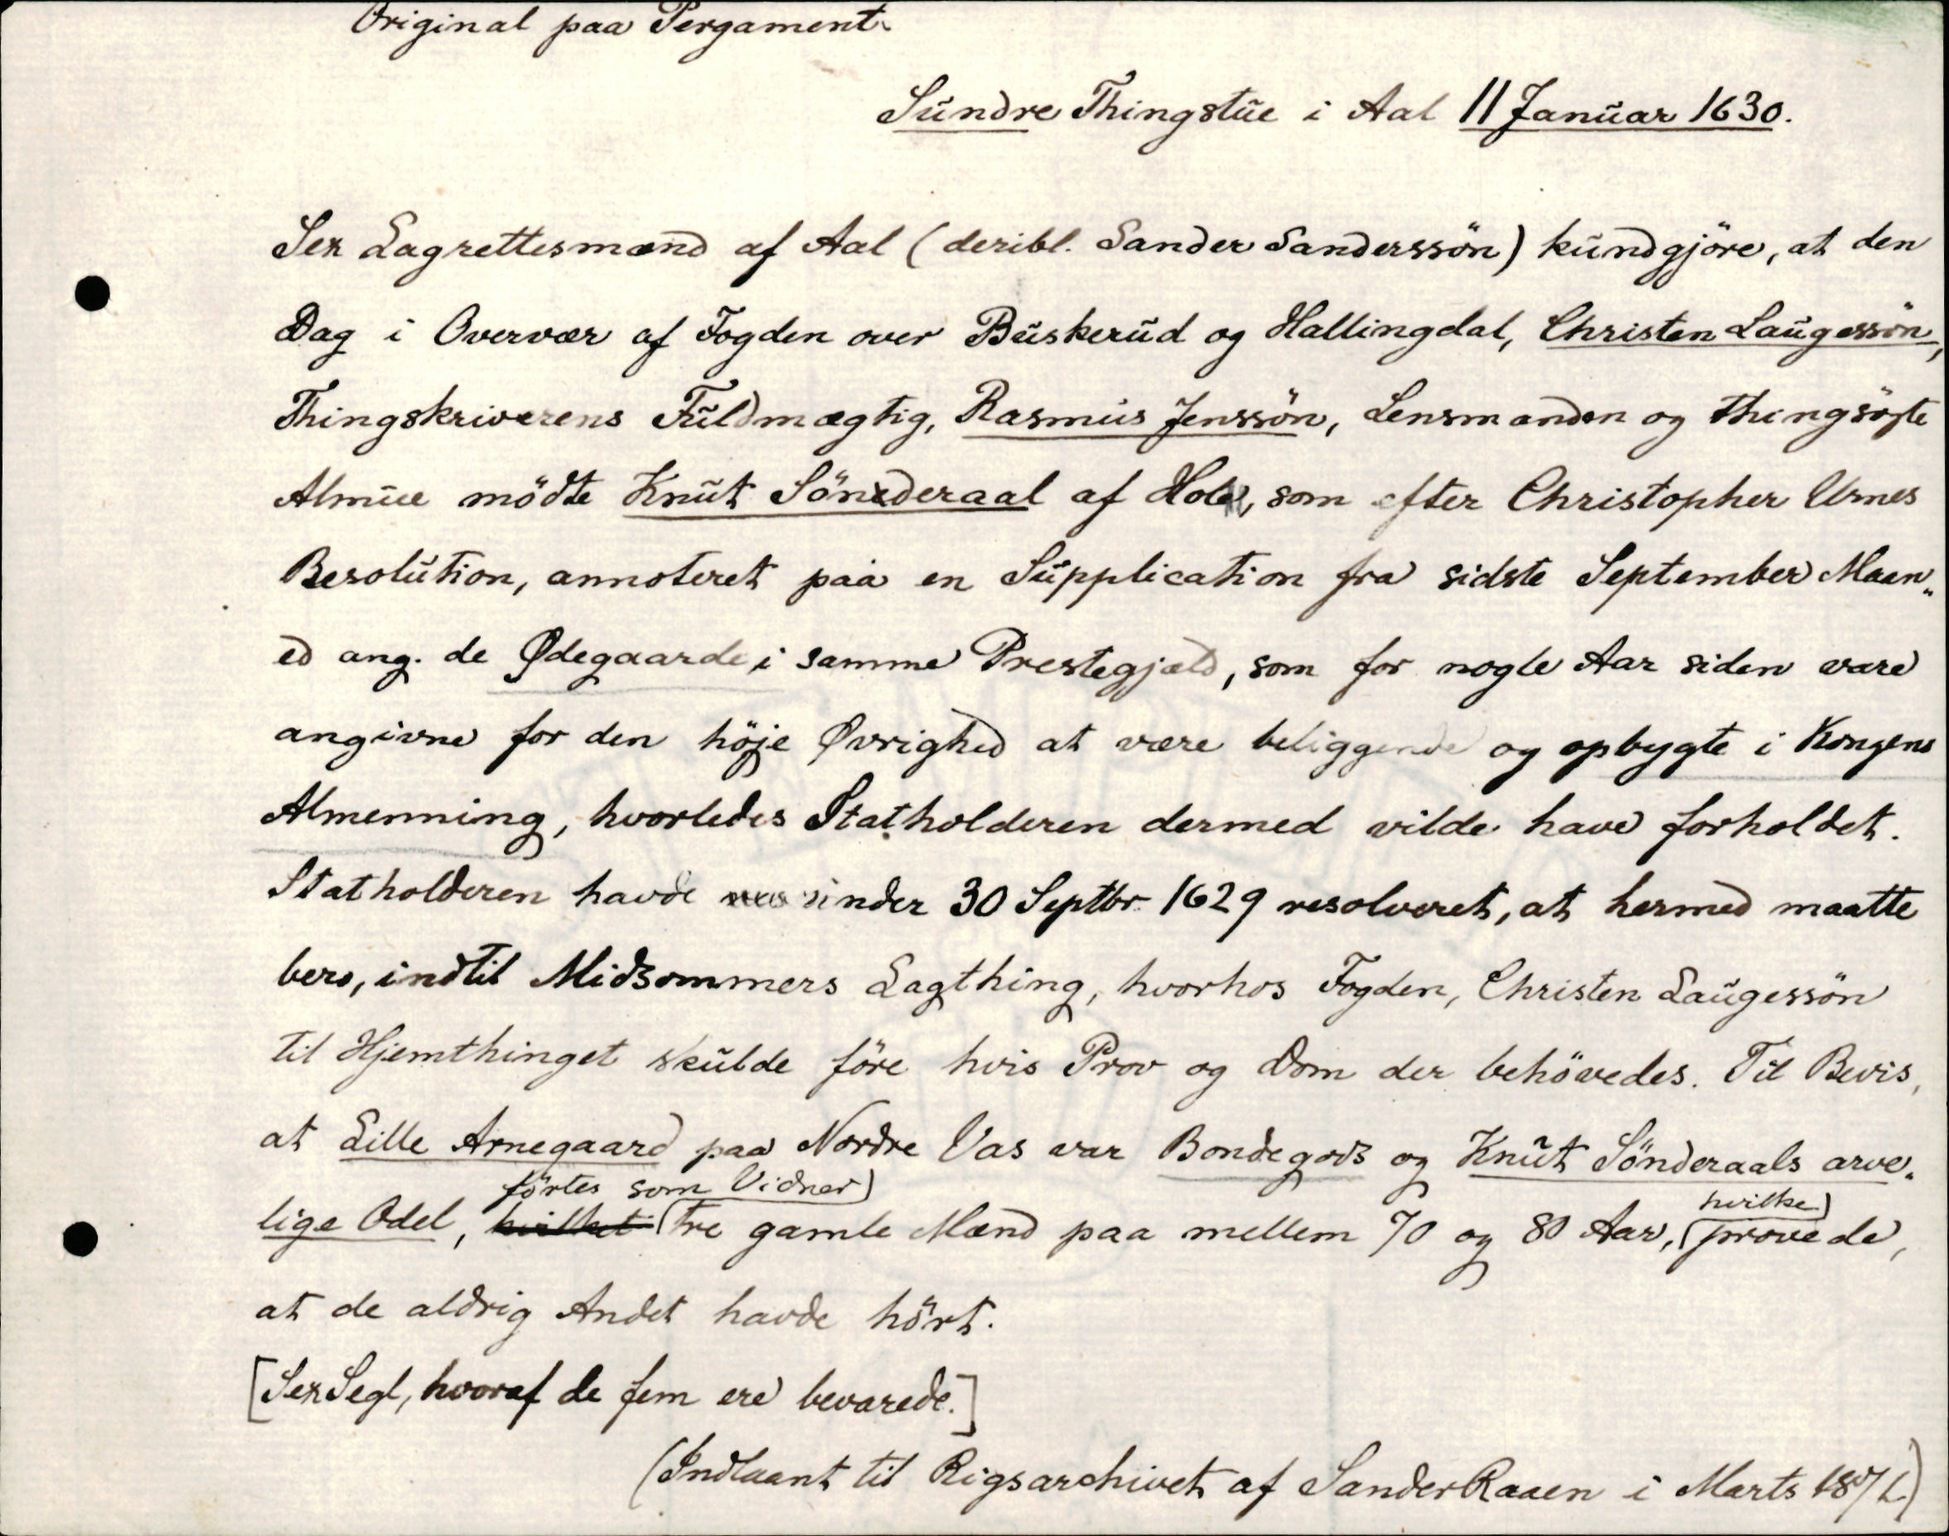 Original paa Pergament.
Sundre Thingstue i Aal 11 Januar 1630.
Sex Lagrettesmænd af Aal (deribl. Sander Sanderssön) kundgjöre, at den
Dag i Overvær af Fogden over Buskerud og Hallingdal, Christen Laugessön,
Thingskriverens Fuldmægtig, Rasmus Jenssön, Lensmanden og thingsögte
Almue mödte Knut Sönderaal af Hol, som efter Christopher Urnes
Resolution, annoteret paa en Supplication fra sidste September Maan„
ed ang. de Ødegaarde i samme Prestegjæld, som for nogle Aar siden vare
angivne for den höje Øvrighed at være beliggende og opbygte i Kongens
Almenning, hvorledes Statholderen dermed vilde have forholdet.
Statholderen havde under 30 Septbr. 1629 resolveret, at hermed maatte
bero, indtil Midsommers Lagthing, hvorhos Fogden, Christen Laugessön
til Hjemthinget skulde före hvis Prov og Dom der behövedes. Til Bevis,
at Lille Arnegaard paa Nordre Vas var Bondegods og Knut Sönderaals arve„
förtes som Vidner hvilke
lige Odel, hvilket tre gamle Mænd paa mellem 70 og 80 Aar, provede,
at de aldrig Andet havde hört.
[Sex Segl, hvoraf de fem ere bevarede.]
(Indlaant til Rigsarchivet af Sander Raaen i Marts 1871.)